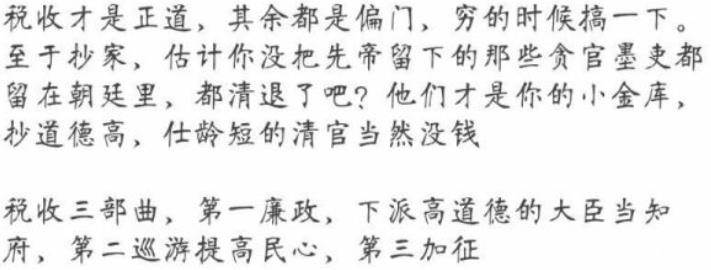 税收才是正道，其余都是偏门，穷的时候搞一下。
至于抄家，估计你没把先帝留下的那些贪官墨吏都
留在朝廷里，都清退了吧？他们才是你的小金库，
抄道德高，仕龄短的清官当然没钱
税收三部曲，第一廉政，下派高道德的大臣当知
府，第二巡游提高民心，第三加征